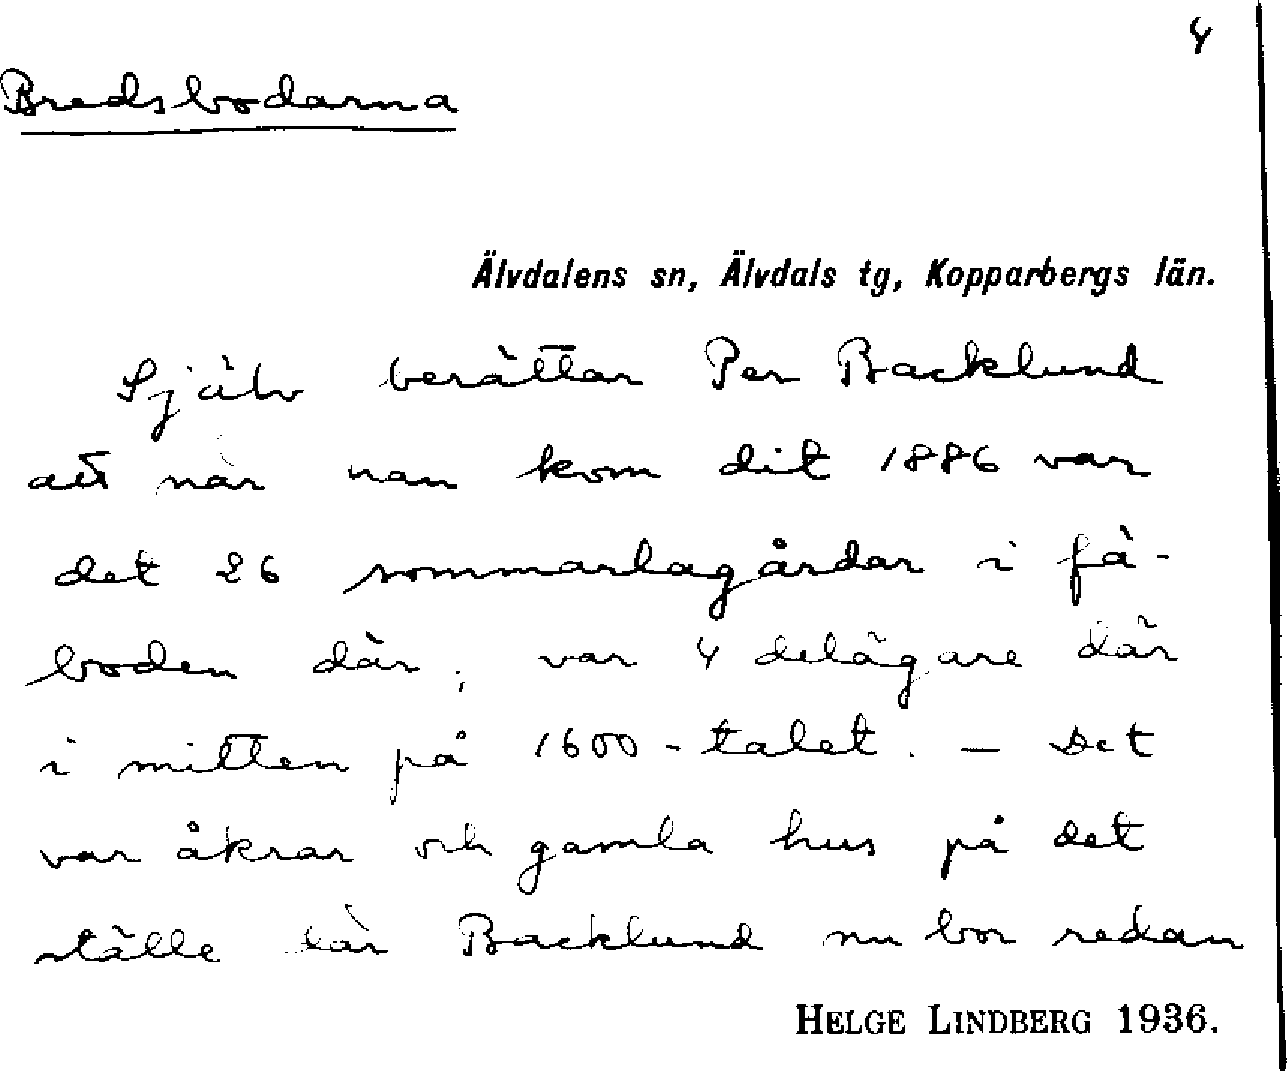 4
Bredsbodarna
Älvdalens sn, Älvdals tg, Kopparbergs län.
Själv berättar Per Backlund
att när han kom dit 1886 var
det 26 sommarlagårdar i fä-
boden där; var 4 delägare där
i mitten på 1600-talet. — Det
var åkrar och gamla hus på det
ställe där Backlund nu bor redan
HELGE LINDBERG 1936.